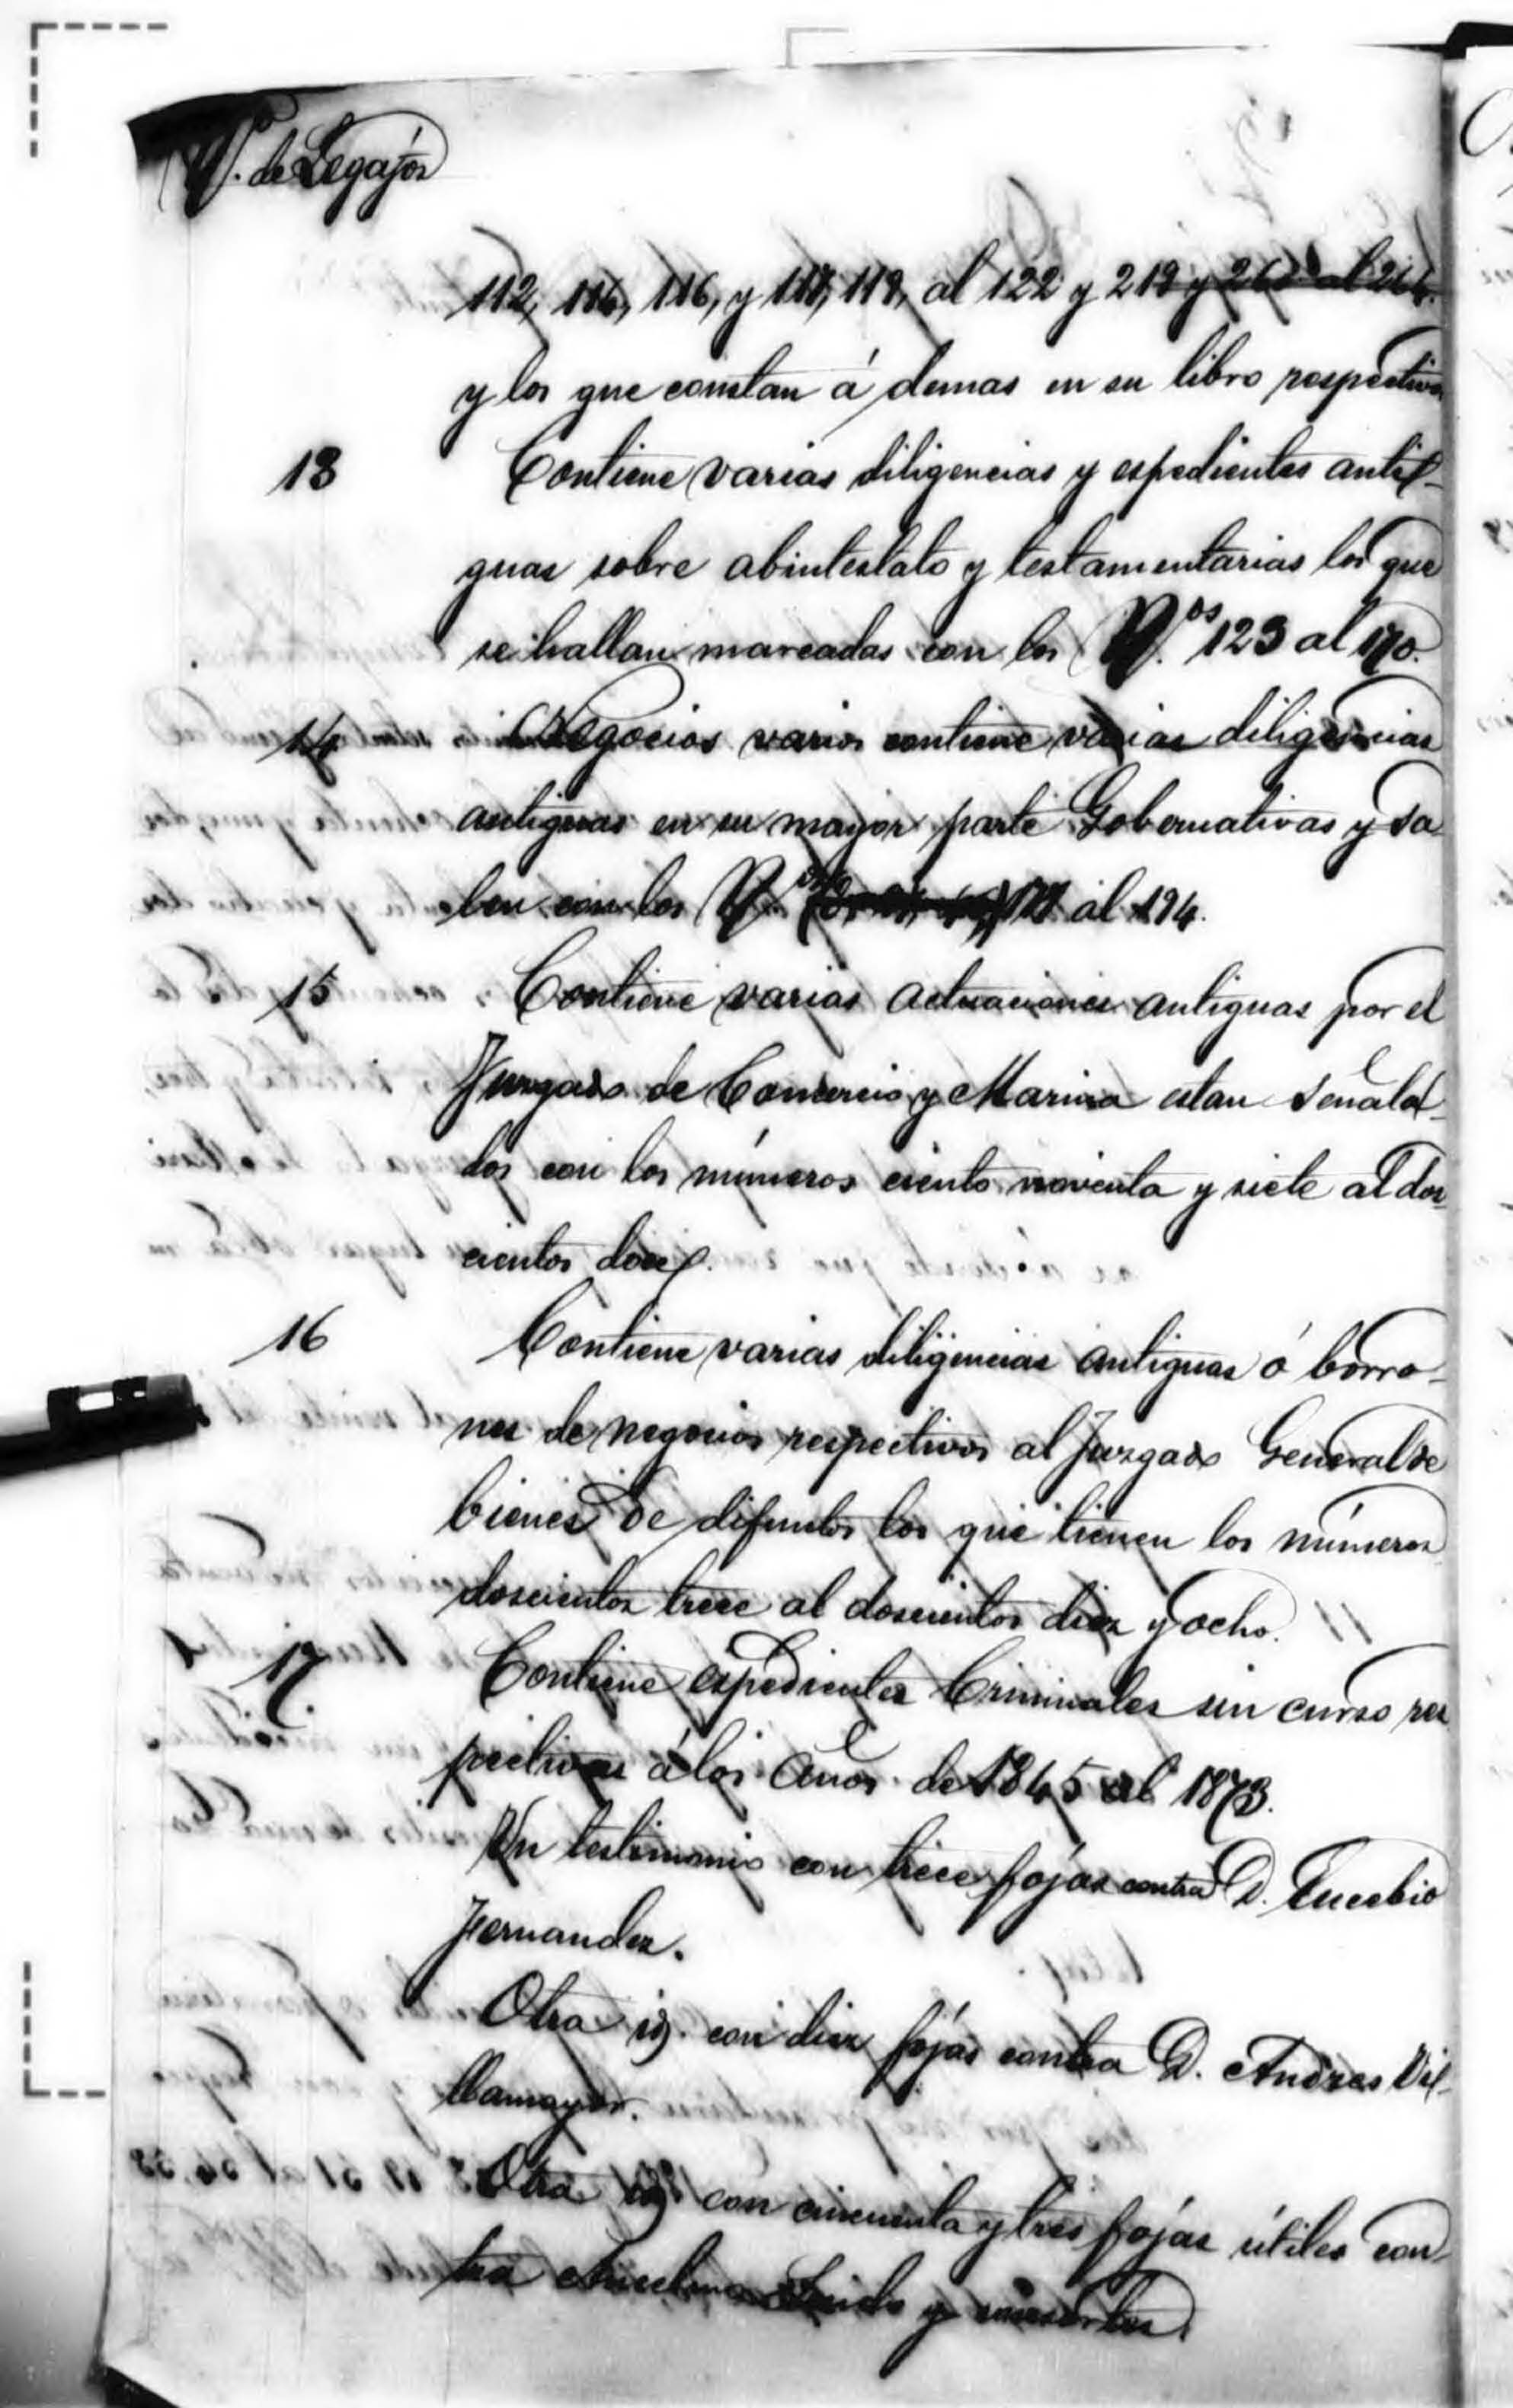 N.º de Legajos
112, 114, 116, y 117, 119, al 122 y 219 y 26 al 264.
y los que constan á demas en su libro respectivo
13 Contiene varias diligencias y espedientes anti-
guas sobre abintestato y testamentarias los que
se hallan marcadas con los N.os 123 al 170.
14 Negocios varios contiene varias diligencias
antiguas en su mayor parte Gobernativas y sa
ben con los N.os 171 al 194.
15 Contiene varias actuaciones antiguas por el
Juzgado de Comercio y Marina estan señala-
dos con los números ciento noventa y siete al dos
cientos doce.
16 Contiene varias diligencias antiguas ó borro-
nes de negocios respectivos al Juzgado General de
bienes de difuntos los que tienen los números
doscientos trece al doscientos diez y ocho.
17. Contiene espedientes Criminales sin curso res
pectivos á los años de 1845 al 1873.
Un testimonio con trece fojas contra D. Eucebio
Fernandez.
Otra id. con diez fojas contra D. Andres Vi-
llamayor.
Otra id con cincuenta y tres fojas útiles con-
tra y consortes.